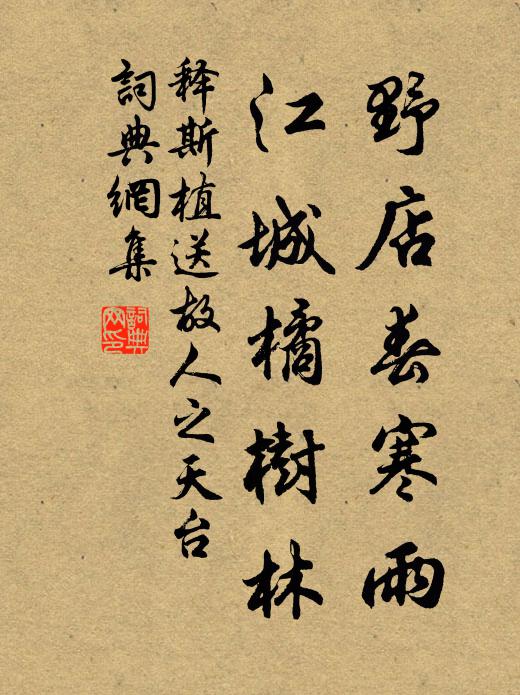 野店春寒雨
江城橘樹林
释斯植送故人之天台
詞典網集
詞典网印